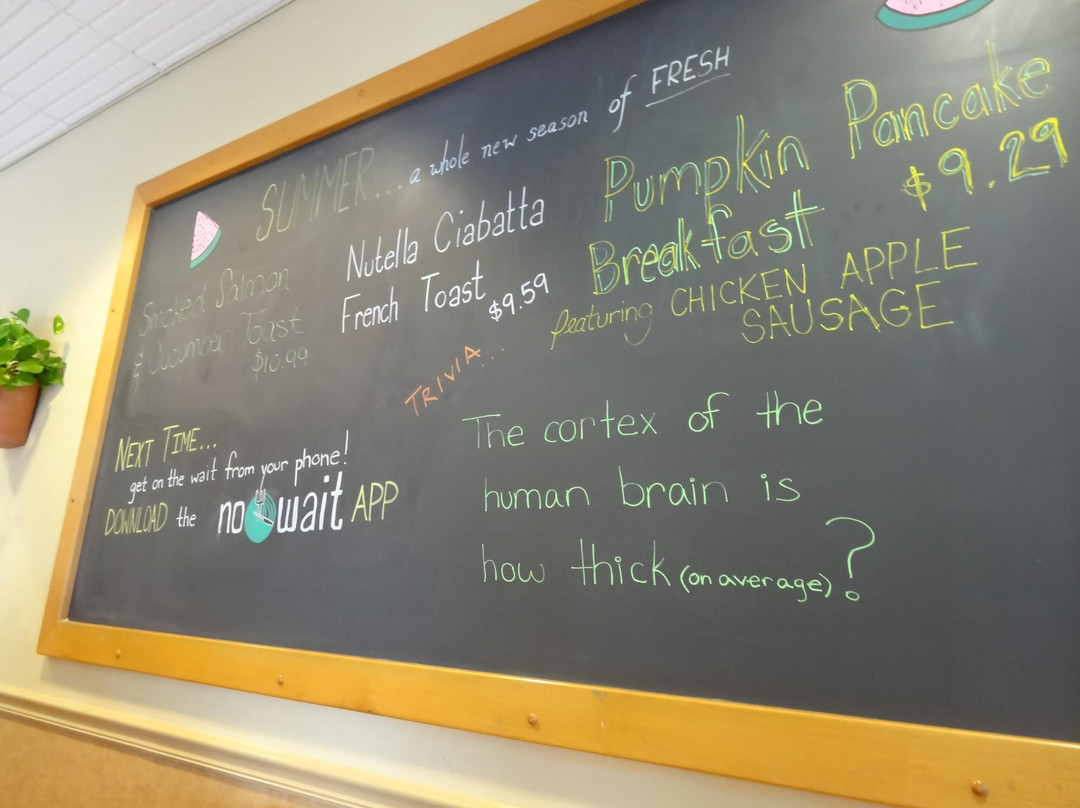 SUMMER... a whole new season of FRESH
Smoked Salmon
& Cucumber Toast
$10.99
Nutella Ciabatta
French Toast
$9.59
Pumpkin Pancake
Breakfast $9.29
featuring CHICKEN APPLE
SAUSAGE
TRIVIA...
The cortex of the
human brain is
how thick (on average)?
NEXT TIME...
get on the wait from your phone!
DOWNLOAD the nowait APP